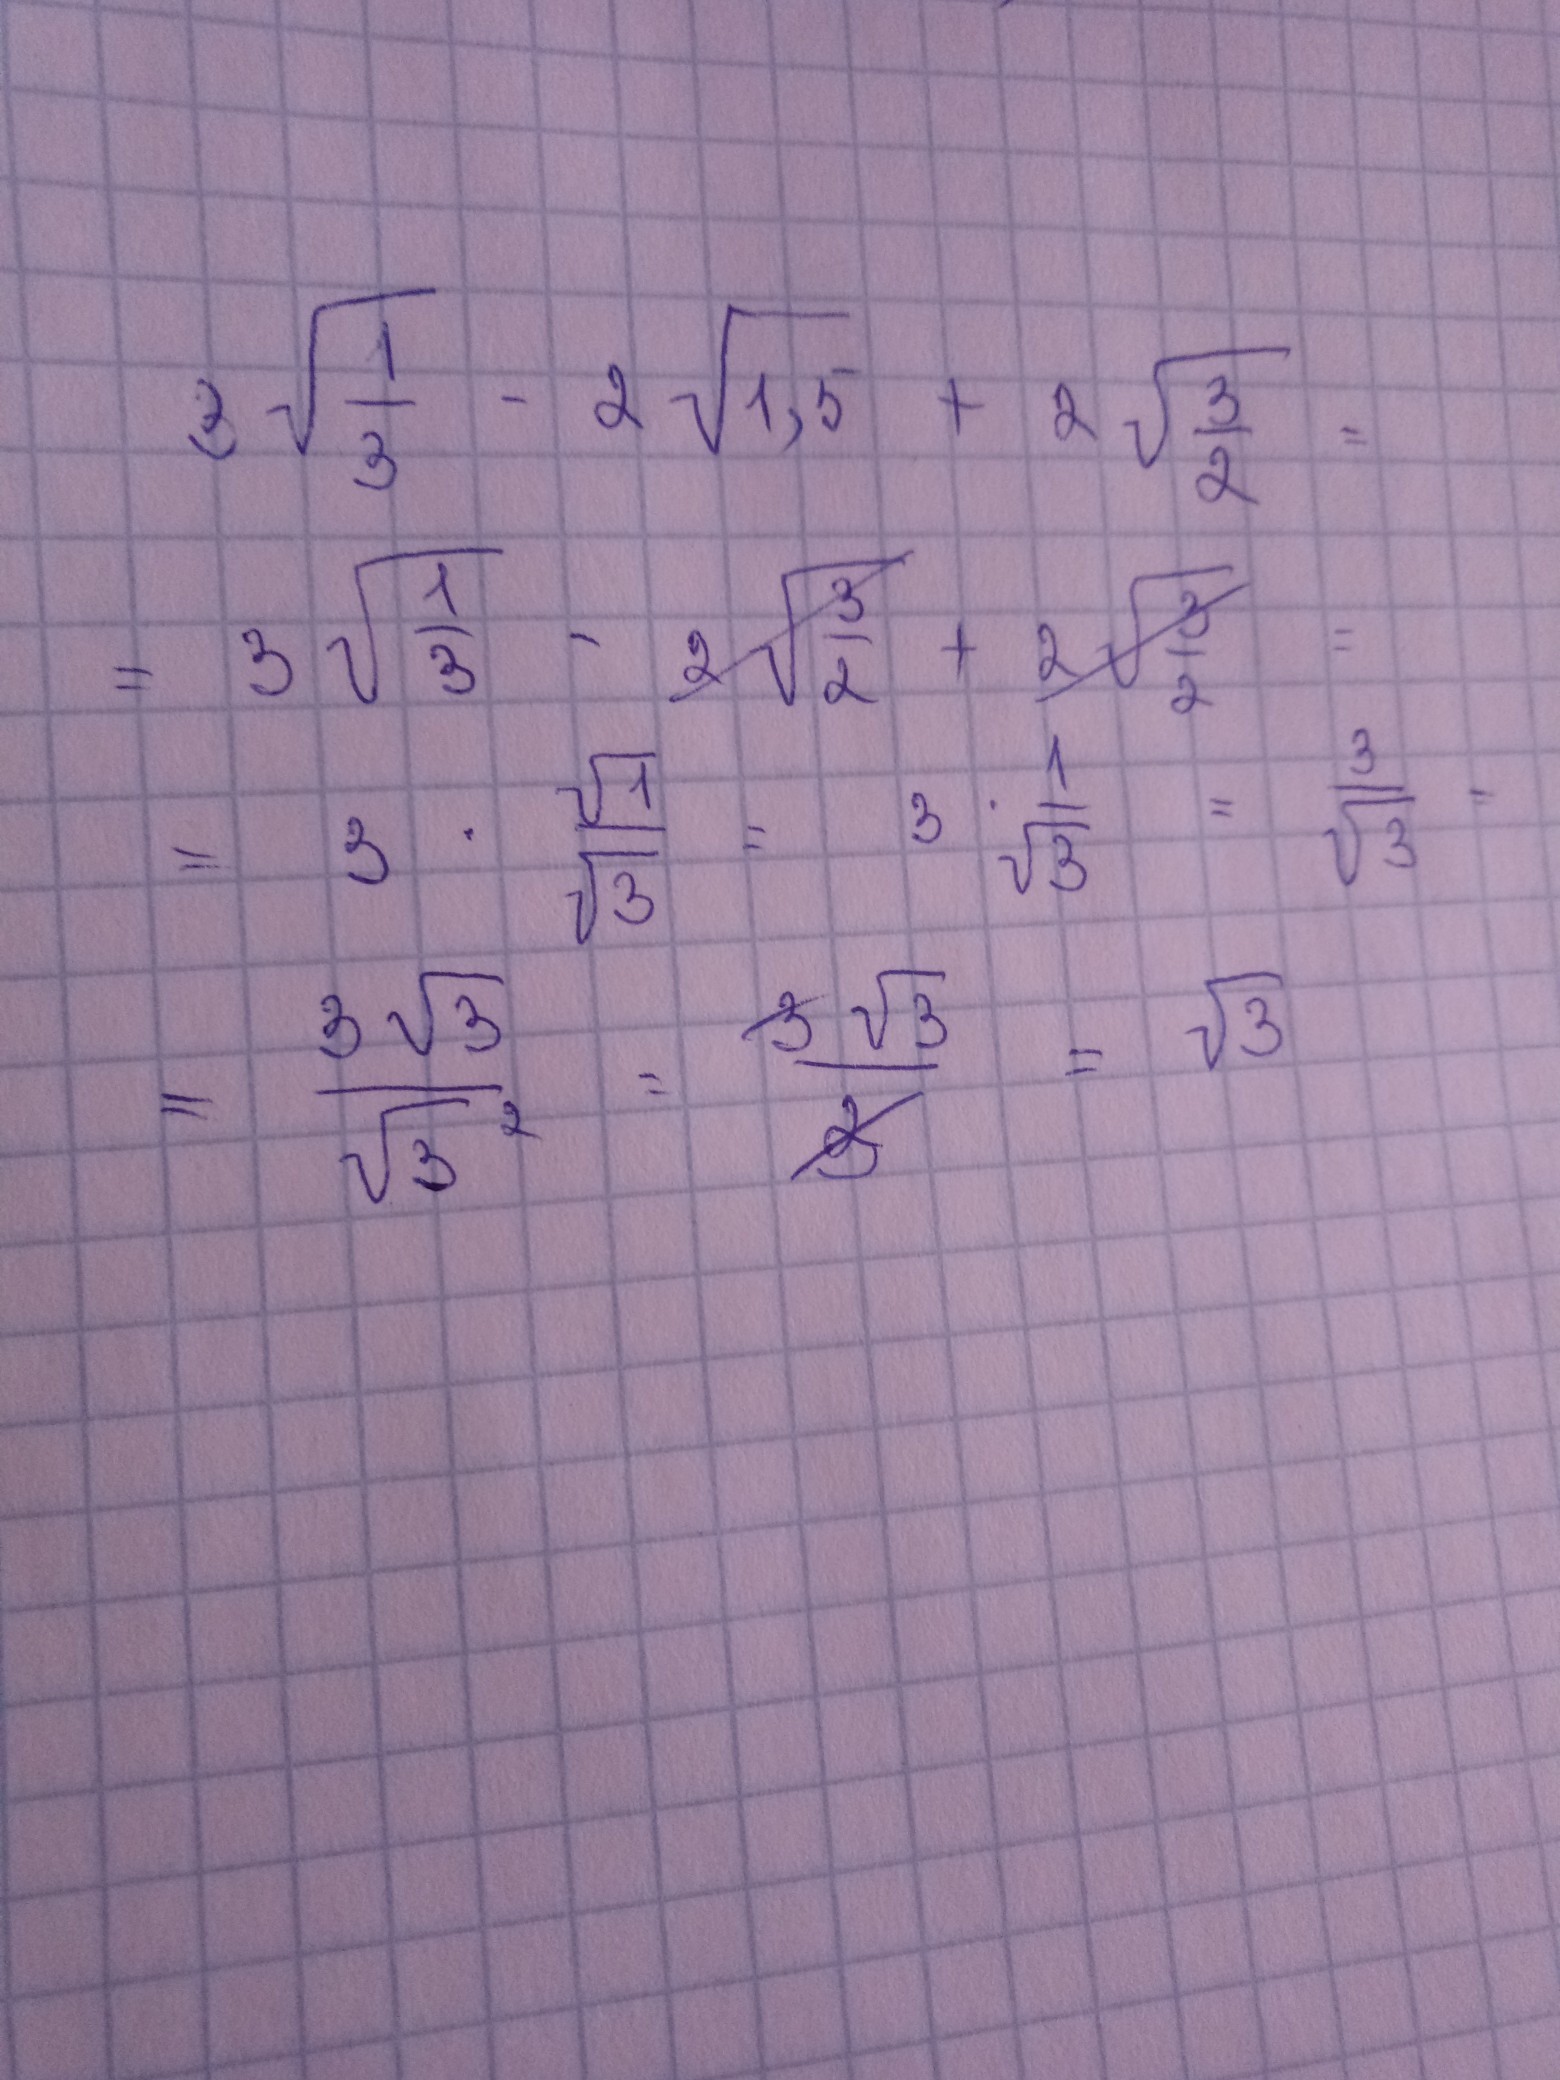 3 √(1/3) - 2 √1,5 + 2 √(3/2) =
= 3 √(1/3) - 2 √(3/2) + 2 √(3/2) =
= 3 · √1/√3 = 3 · 1/√3 = 3/√3 =
= 3√3/√3² = 3√3/3 = √3